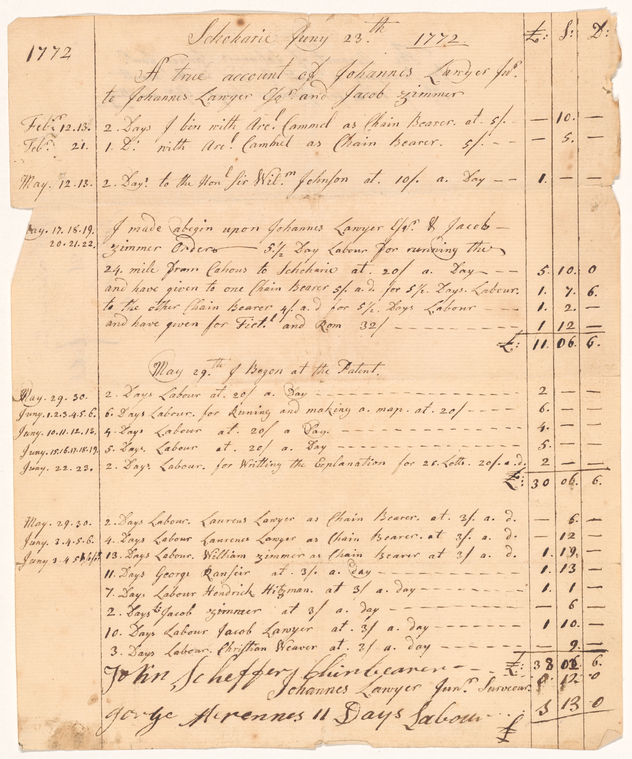 1772
Schoharie Juny 23.th 1772. £: S: D:
A true account of Johannes Lawyer Jur.
to Johannes Lawyer Esqr. and Jacob Zimmer
Febr. 12.13. 2. Days I bin with Arcl Cammel as Chain Bearer. at. 5/. — 10. —
Febr. 21. 1. Do. with Arcl Cammel as Chain Bearer. 5/. — — 5. —
May. 12.13. 2. Days. to the Honl Sir Wilm Johnson at. 10/. a. Day — — 1. — —
May. 17.18.19. I made abegin upon Johannes Lawyer Esqr. & Jacob —
20.21.22. Zimmer Orders — 5½ Day Labour for running the
24. mile from Cahous to Schoharie at. 20/ a. Day — — 5. 10. 0
and have given to one Chain Bearer 5/. a.d for 5½ Days. Labour. 1. 7. 6.
to the other Chain Bearer 4/. a.d for 5½ Days Labour — 1. 2. —
and have given for and Rom 32/ — 1 12 —
£: 11. 06. 6.
May 29.th I Began at the Patent.
May. 29. 30. 2. Days Labour at. 20/ a. Day — 2 — —
Juny. 1.2.3.4.5.6. 6. Days Labour. for Runing and making a. map. at. 20/ — 6. — —
Juny. 10.11.12. 4. Days Labour at. 20/ a Day. — 4. — —
Juny. 15.16.17.18.19. 5. Days. Labour at. 20/ a. Day — 5. — —
Juny. 22. 23. 2. Days. Labour. for Writting the Explanation for 25. Lotts. 20/. a. d. 2 — —
£: 30 06. 6.
May. 29.30. 2. Days Labour. Laurens Lawyer as Chain Bearer. at. 3/. a. d. — 6. —
Juny. 3.4.5.6. 4. Days Labour Laurens Lawyer as Chain Bearer. at 3/. a. d. — 12 —
Juny 3.4.5 13. Days Labour. William Zimmer as Chain Bearer at 3/ a. d. 1. 19. —
11. Days George Ransier at 3/. a. day — 1. 13 —
7. Day Labour Hendrick Hitzman. at 3/ a day — 1. 1 —
2. Days Jacob Zimmer at 3/ a day — — 6 —
10. Days Labour Jacob Lawyer at 3/ a. day — 1 10. —
3. Days Labour. Christian Weaver at 3/. a day — — 9. —
John Scheffer Chinbearer — £: 38 02 6.
Johannes Lawyer Junr. Surveour 0 12 0
gorge 11 Days Labour £ 3 13 0